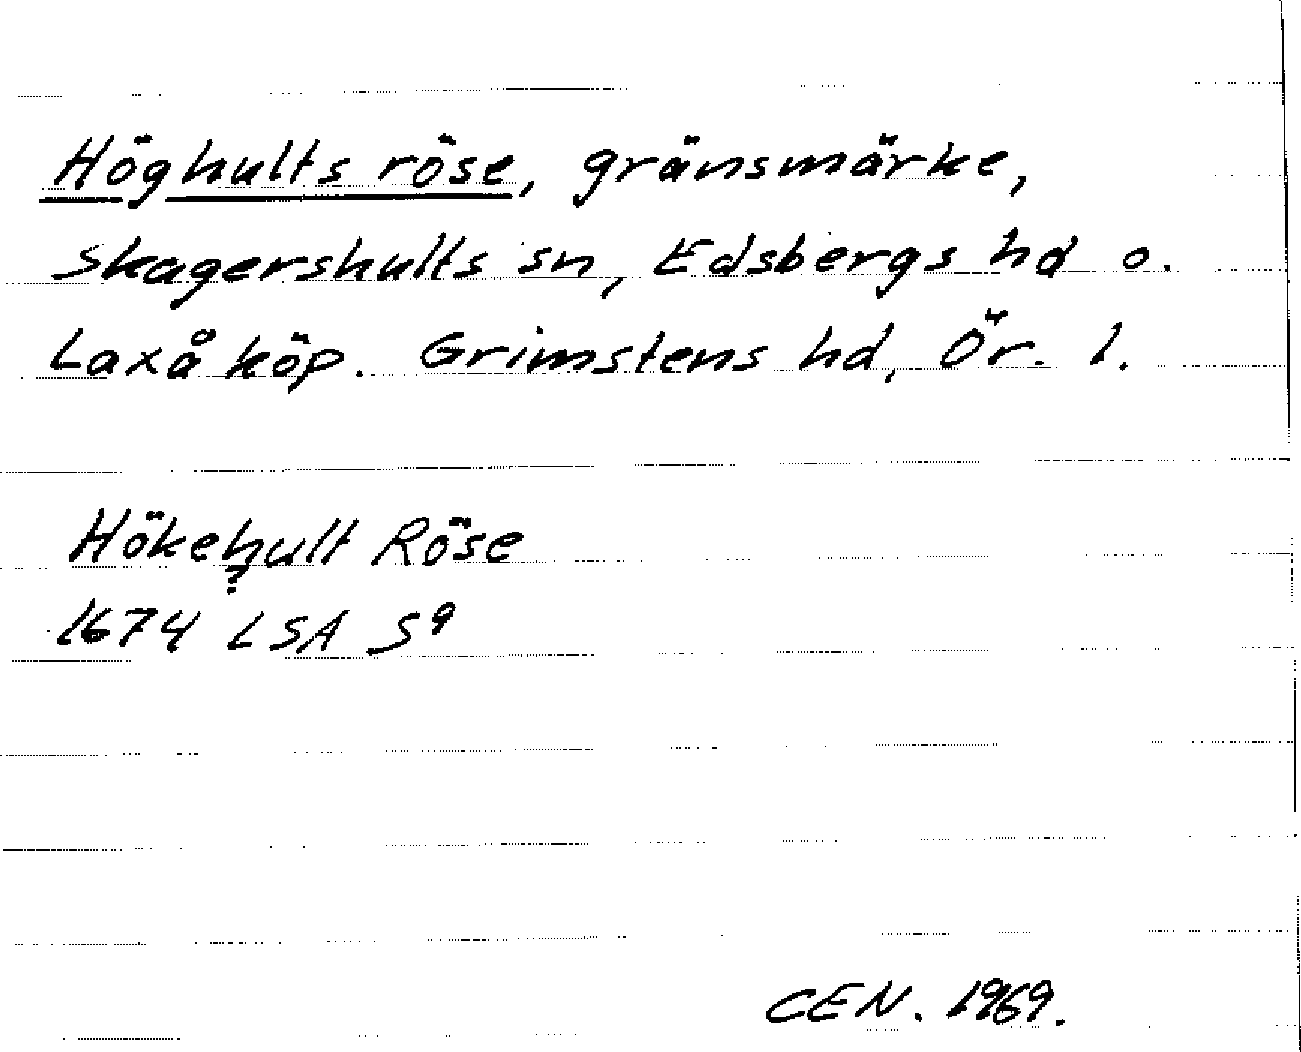 Höghults röse, gränsmärke,
Skagershults sn, Edsbergs hd o.
Laxå köp. Grimstens hd, Ör. l.
Hökehult Röse
?
1674 LSA S9
CEN. 1969.